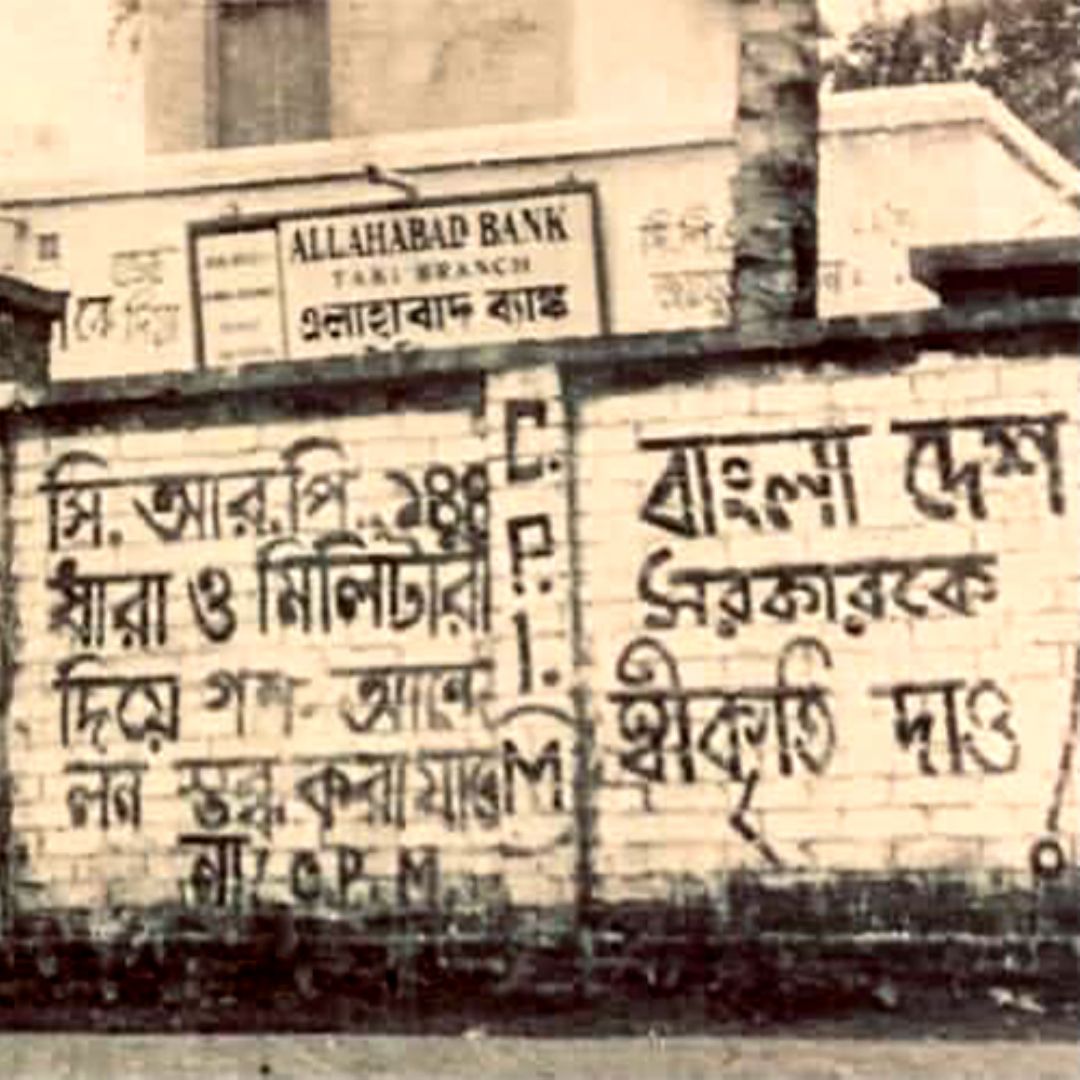 ALLAHABAD BANK
TAKI BRANCH
এলাহাবাদ ব্যাঙ্ক
সি. আর. পি. ১৪৪
ধারা ও মিলিটারী
দিয়ে গণ- আন্দো
লন স্তব্ধ করা যাবে
না! C P M
C.P.I.(M)
বাংলা দেশ
সরকারকে
স্বীকৃতি দাও!